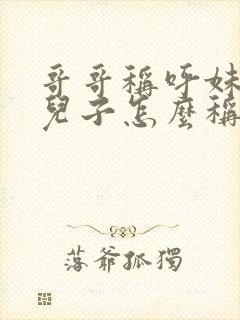 哥哥稱呼妹
兒子怎麼稱
落爺孤獨